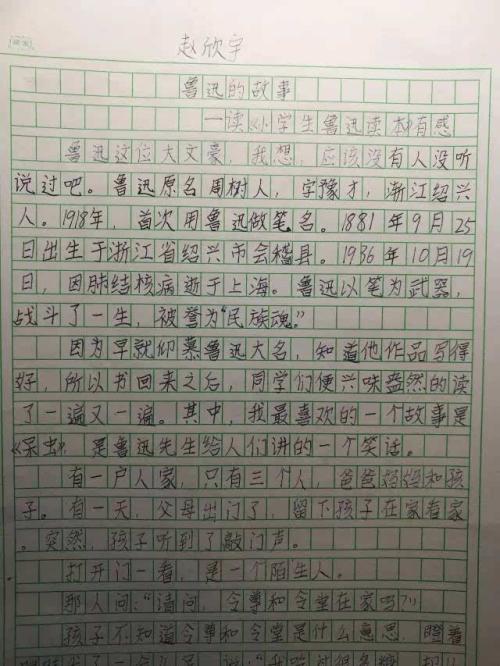 赵欣宇
鲁迅的故事
—读《小学生鲁迅读本》有感
鲁迅这位大文豪，我想，应该没有人没听
说过吧。鲁迅原名周树人，字豫才，浙江绍兴
人。1918年，首次用鲁迅做笔名。1881年9月25
日出生于浙江省绍兴市会稽县。1936年10月19
日，因肺结核病逝于上海。鲁迅以笔为武器，
战斗了一生，被誉为“民族魂”。
因为早就仰慕鲁迅大名，知道他作品写得
好，所以书回来之后，同学们便兴味盎然的读
了一遍又一遍。其中，我最喜欢的一个故事是
《呆虫》，是鲁迅先生给人们讲的一个笑话。
有一户人家，只有三个人，爸爸妈妈和孩
子。有一天，父母出门了，留下孩子在家看家
。突然，孩子听到了敲门声。
打开门一看，是一个陌生人。
那人问：“请问，令尊和令堂在家吗？”
孩子不知道令尊和令堂是什么意思，瞪着